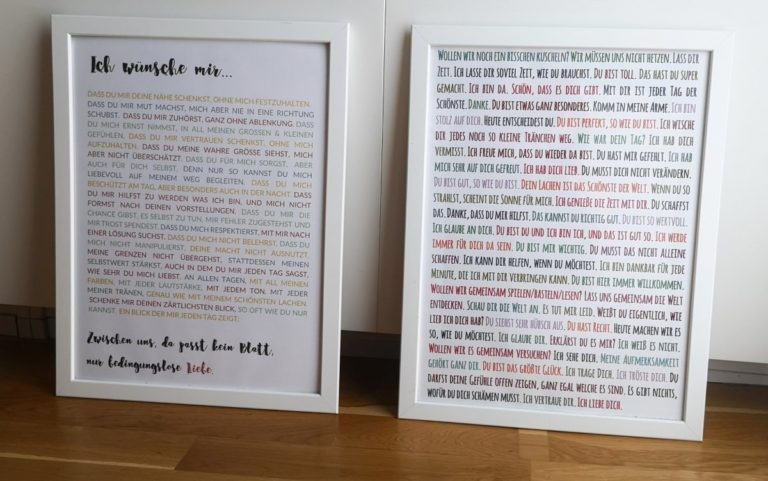 Ich wünsche mir...
DASS DU MIR DEINE NÄHE SCHENKST, OHNE MICH FESTZUHALTEN.
DASS DU MIR MUT MACHST, MICH ABER NIE IN EINE RICHTUNG
SCHUBST. DASS DU MIR ZUHÖRST, GANZ OHNE ABLENKUNG. DASS
DU MICH ERNST NIMMST, IN ALL MEINEN GROSSEN & KLEINEN
GEFÜHLEN. DASS DU MIR VERTRAUEN SCHENKST, OHNE MICH
AUFZUHALTEN. DASS DU MEINE WAHRE GRÖSSE SIEHST, MICH
ABER NICHT ÜBERSCHÄTZT. DASS DU FÜR MICH SORGST, ABER
AUCH FÜR DICH SELBST, DENN NUR SO KANNST DU MICH
LIEBEVOLL AUF MEINEM WEG BEGLEITEN. DASS DU MICH
BESCHÜTZT AM TAG, ABER BESONDERS AUCH IN DER NACHT. DASS
DU MIR HILFST ZU WERDEN WAS ICH BIN, UND MICH NICHT
FORMST NACH DEINEN VORSTELLUNGEN. DASS DU MIR DIE
CHANCE GIBST, ES SELBST ZU TUN, MIR FEHLER ZUGESTEHST UND
MIR TROST SPENDEST. DASS DU MICH RESPEKTIERST, MIT MIR NACH
EINER LÖSUNG SUCHST. DASS DU MICH NICHT BELEHRST. DASS DU
MICH NICHT MANIPULIERST, DEINE MACHT NICHT AUSNUTZT,
MEINE GRENZEN NICHT ÜBERGEHST, STATTDESSEN MEINEN
SELBSTWERT STÄRKST. AUCH IN DEM DU MIR JEDEN TAG SAGST,
WIE SEHR DU MICH LIEBST. AN ALLEN TAGEN, MIT ALL MEINEN
FARBEN, MIT JEDER LAUTSTÄRKE, MIT JEDEM TON. MIT JEDER
MEINER TRÄNEN, GENAU WIE MIT MEINEM SCHÖNSTEN LACHEN.
SCHENKE MIR DEINEN ZÄRTLICHSTEN BLICK, SO OFT WIE DU NUR
KANNST. EIN BLICK DER MIR JEDEN TAG ZEIGT;
Zwischen uns, da passt kein Blatt,
nur bedingungslose Liebe.
WOLLEN WIR NOCH EIN BISSCHEN KUSCHELN? WIR MÜSSEN UNS NICHT HETZEN. LASS DIR
ZEIT. ICH LASSE DIR SOVIEL ZEIT, WIE DU BRAUCHST. DU BIST TOLL. DAS HAST DU SUPER
GEMACHT. ICH BIN DA. SCHÖN, DASS ES DICH GIBT. MIT DIR IST JEDER TAG DER
SCHÖNSTE. DANKE. DU BIST ETWAS GANZ BESONDERES. KOMM IN MEINE ARME. ICH BIN
STOLZ AUF DICH. HEUTE ENTSCHEIDEST DU. DU BIST PERFEKT, SO WIE DU BIST. ICH WISCHE
DIR JEDES NOCH SO KLEINE TRÄNCHEN WEG. WIE WAR DEIN TAG? ICH HAB DICH
VERMISST. ICH FREUE MICH, DASS DU WIEDER DA BIST. DU HAST MIR GEFEHLT. ICH HAB
MICH SEHR AUF DICH GEFREUT. ICH HAB DICH LIEB. DU MUSST DICH NICHT VERÄNDERN.
DU BIST GUT, SO WIE DU BIST. DEIN LACHEN IST DAS SCHÖNSTE DER WELT. WENN DU SO
STRAHLST, SCHEINT DIE SONNE FÜR MICH. ICH GENIESSE DIE ZEIT MIT DIR. DU SCHAFFST
DAS. DANKE, DASS DU MIR HILFST. DAS KANNST DU RICHTIG GUT. DU BIST SO WERTVOLL.
ICH GLAUBE AN DICH. DU BIST DU UND ICH BIN ICH, UND DAS IST GUT SO. ICH WERDE
IMMER FÜR DICH DA SEIN. DU BIST MIR WICHTIG. DU MUSST DAS NICHT ALLEINE
SCHAFFEN. ICH KANN DIR HELFEN, WENN DU MÖCHTEST. ICH BIN DANKBAR FÜR JEDE
MINUTE, DIE ICH MIT DIR VERBRINGEN KANN. DU BIST HIER IMMER WILLKOMMEN.
WOLLEN WIR GEMEINSAM SPIELEN/BASTELN/LESEN? LASS UNS GEMEINSAM DIE WELT
ENTDECKEN. SCHAU DIR DIE WELT AN. ES TUT MIR LEID. WEISST DU EIGENTLICH, WIE
LIEB ICH DICH HAB? DU SIEHST SEHR HÜBSCH AUS. DU HAST RECHT. HEUTE MACHEN WIR ES
SO, WIE DU MÖCHTEST. ICH GLAUBE DIR. ERKLÄRST DU ES MIR? ICH WEISS ES NICHT.
WOLLEN WIR ES GEMEINSAM VERSUCHEN? ICH SEHE DICH. MEINE AUFMERKSAMKEIT
GEHÖRT GANZ DIR. DU BIST DAS GRÖSSTE GLÜCK. ICH TRAGE DICH. ICH TRÖSTE DICH. DU
DARFST DEINE GEFÜHLE OFFEN ZEIGEN, GANZ EGAL WELCHE ES SIND. ES GIBT NICHTS,
WOFÜR DU DICH SCHÄMEN MUSST. ICH VERTRAUE DIR. ICH LIEBE DICH.